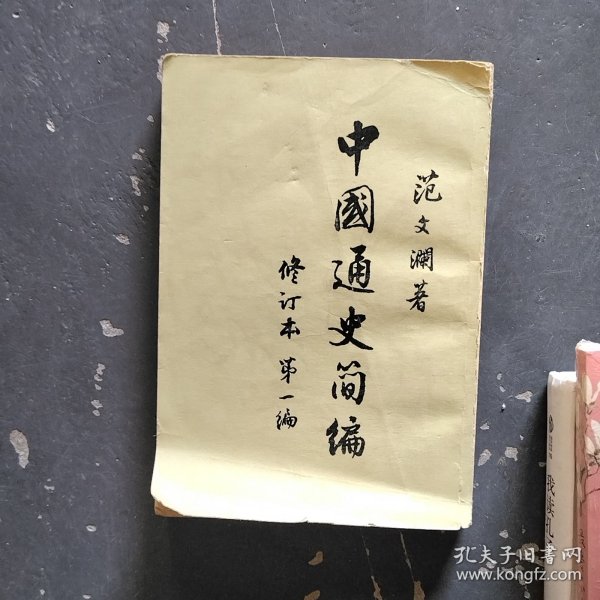 范文澜著
中國通史简编
修订本 第一编
孔夫子旧書网
www.kongfz.com